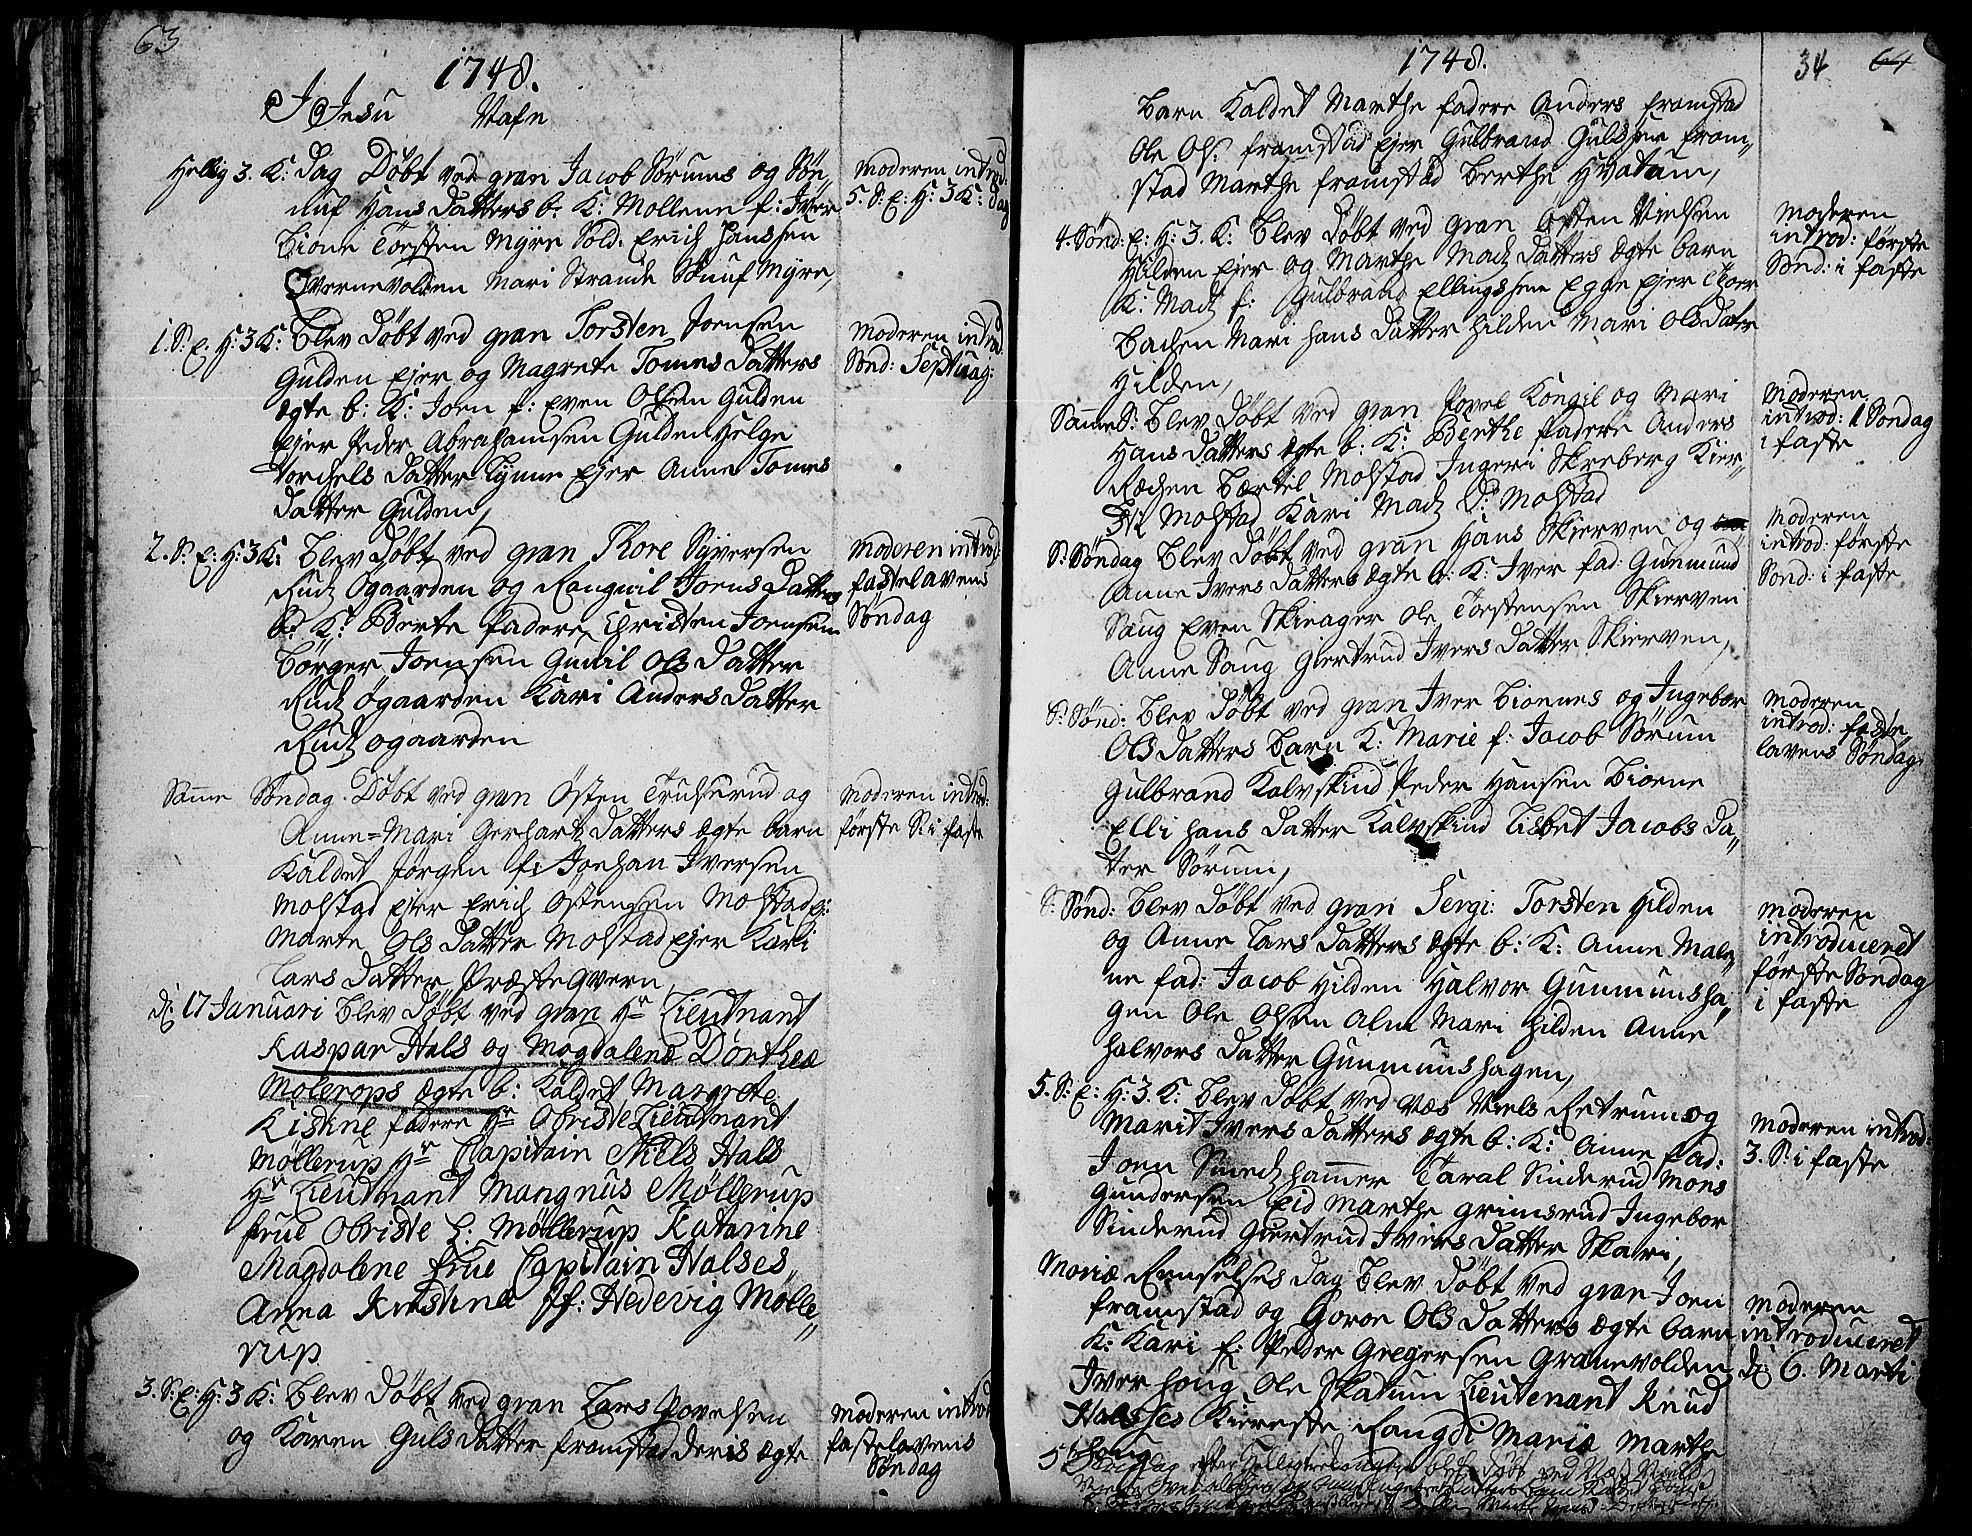 63
1748.
J Jesu Nafn
Hellig 3. K: Dag Døbt ved gran Jacob Sørums og Sønuf Hans Datters b. K: Mollenn f: Iver
Bione Torsten Myre Sold. Erich Hanssen
Qvernevolden Mari Strande Sønuf Myre,
Moderen introd:
5. S: E: H: 3 K: Dag
1. S: E: H: 3 K: Blev Døbt ved gran Torsten Joensen
Gulden Ejer og Magrete Tomes Datters
Ægte b: K: Joen f: Even Olsen Gulden
Ejer Peder Abrahamsen Gulden Helge
Torchels Datter Lynne Ejer Anne Tomes
Datter Gulden,
Moderen introd:
Sønd: Septuag:
2. S: E: H: 3 K: Blev Døbt ved gran Thore Syversen
Rudz Ogaarden og Rangnil Joens Datters
b: K: Berte Fadere Christen Joensen
Børger Joensen Gunil Ols Datter
Rudz Øgaarden Kari Anders Datter
Rudz ogaarden
Moderen introd:
fastelavens
Søndag
Samme Søndag Døbt ved gran Østen Truhserud og
Anne=Mari Gerhartz Datters Ægte barn
Kaldet Jørgen f: Johan Iversen
Molstad Ejer Erich Østensen Molstad ej:
Marte Ols Datter Molstad Ejer Kari
Lars Datter Præsteqvern
Moderen introd:
første S: i faste
d: 17 Januari Blev Døbt ved gran Hr Lieutnant
Kaspar Hals og Magdalena Dorthea
Molerops Ægte b: Kaldet Margrete
Kistine fadere Hr Obriste Lieutnant
Møllerup Hr Capitain Niels Hals
Hr Lieutnant Mangnus Møllerup
frue Obriste L: Møllerup Katarine
Magdolene frue Capitain Halses
Anna Kirstina Jf: Hedevig Mølle„
rup
3. S: E: H: 3 K: Blev Døbt ved gran Lars Povelsen
og Karen Guls Datter framstad deris Ægte
Moderen introd
fastelavens
Søndag
1748.
34 64
Barn Kaldet Marthe fadere Anders framstad
Ole Ols: framstad Ejer Gulbrand Gulssen fram„
stad Marthe framstad Berthe Hvatum,
4. Sønd: E: H: 3. K: Blev Døbt ved gran Østen Nielsen
Hilden Ejer og Marthe Madz Datters Ægte barn
K: Madz f: Gulbrand Ellingssen Egge Ejer Thoer
Bachen Mari Hans Datter Hilden Mari Olsdater
Hilden,
Moderen
introd: første
Sønd: i faste
Samme S: Blev Døbt ved gran Povel Kongil og Mari
Hans Datters Ægte b: K: Berthe fadere Anders
Røchen Bertel Molstad Ingeri Skreberg Kier„
sti Molstad Kari Madz D: Molstad
Moderen
introd: 1 Søndag
i faste
S: Søndag Blev Døbt ved gran Hans Skierven og
Anne Ivers Datters Ægte b: K: Iver fad: Gunmund
Saug Even Skieager Ole Torstensen Skierven
Anne Saug Giertrud Ivers Datter Skierven,
Moderen
introd: første
Sønd: i faste
S: Sønd: Blev Døbt ved gran Iver Biones og Ingebor
Ols Datters Barn K: Marie f: Jacob Sørum
Gulbrand Kalvskind Peder Hansen Bione
Elli Hans Datter Kalvskind Lisbet Jacobs Da„
ter Sørum,
Moderen
introd: faste
lavens Søndag
S: Sønd: Blev Døbt ved gran Sergi: Torsten Hilden
og Anne Lars Datters Ægte b: K: Anne Male„
ne fad: Jacob Hilden Halvor Gunmunsha„
gen Ole Olsen Alm Mari Hilden Anne
Halvors Datter Gunmunshagen,
Moderen
introduceret
første Søndag
i faste
5. S: E: H: 3. K: Blev Døbt ved Næs Niels Retrums og
Marit Ivers Datters Ægte b: K: Anne fad:
Joen Smedzhammer Taral Sinderud Mons
Gundersen Eid Marthe Grimsrud Ingebor
Sinderud Giertrud Ivers Datter Skari,
Moderen introd:
3. S: i faste
Mariæ Renselses Dag Blev Døbt ved gran Joen
framstad og Goroe Ols Datters Ægte barn
K: Kari f: Peder Gregersen Granevolden
Iver Houg Ole Skatum Lieutenant Knud
Halsses Kiereste Rangdi Mariæ Marthe
Houg
Moderen
introduceret
d: 6. Marti
5 Søndag efter Hellig trekonger blef døbt ved Næs Niels